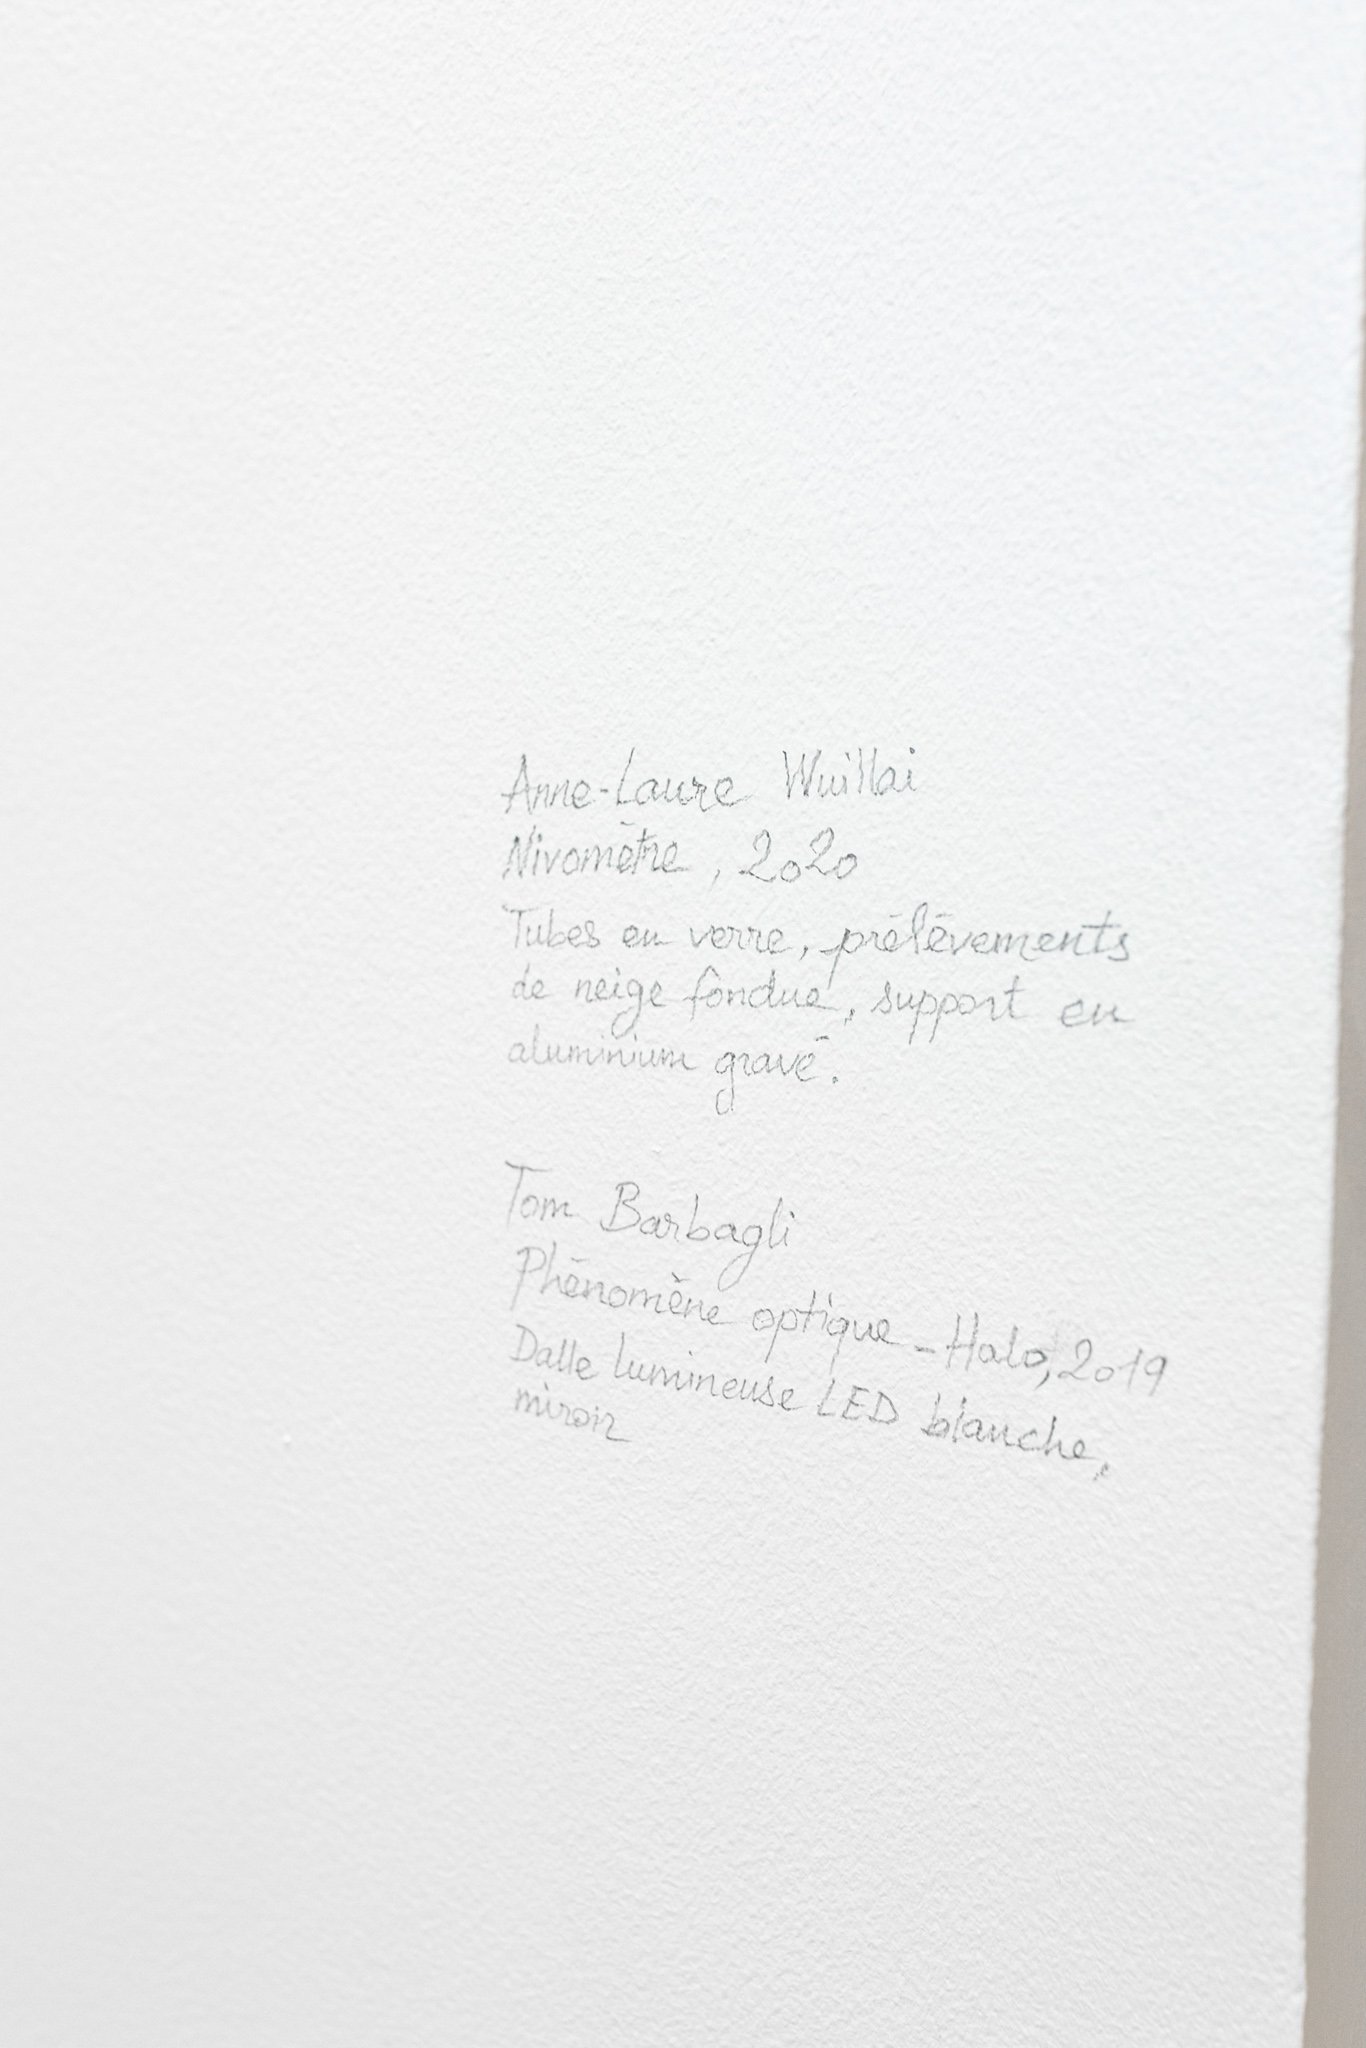 Anne-Laure Wuillai
Nivomètre, 2020
Tubes en verre, prélèvements
de neige fondue, support en
aluminium gravé.
Tom Barbagli
Phénomène optique - Halo, 2019
Dalle lumineuse LED blanche,
miroir